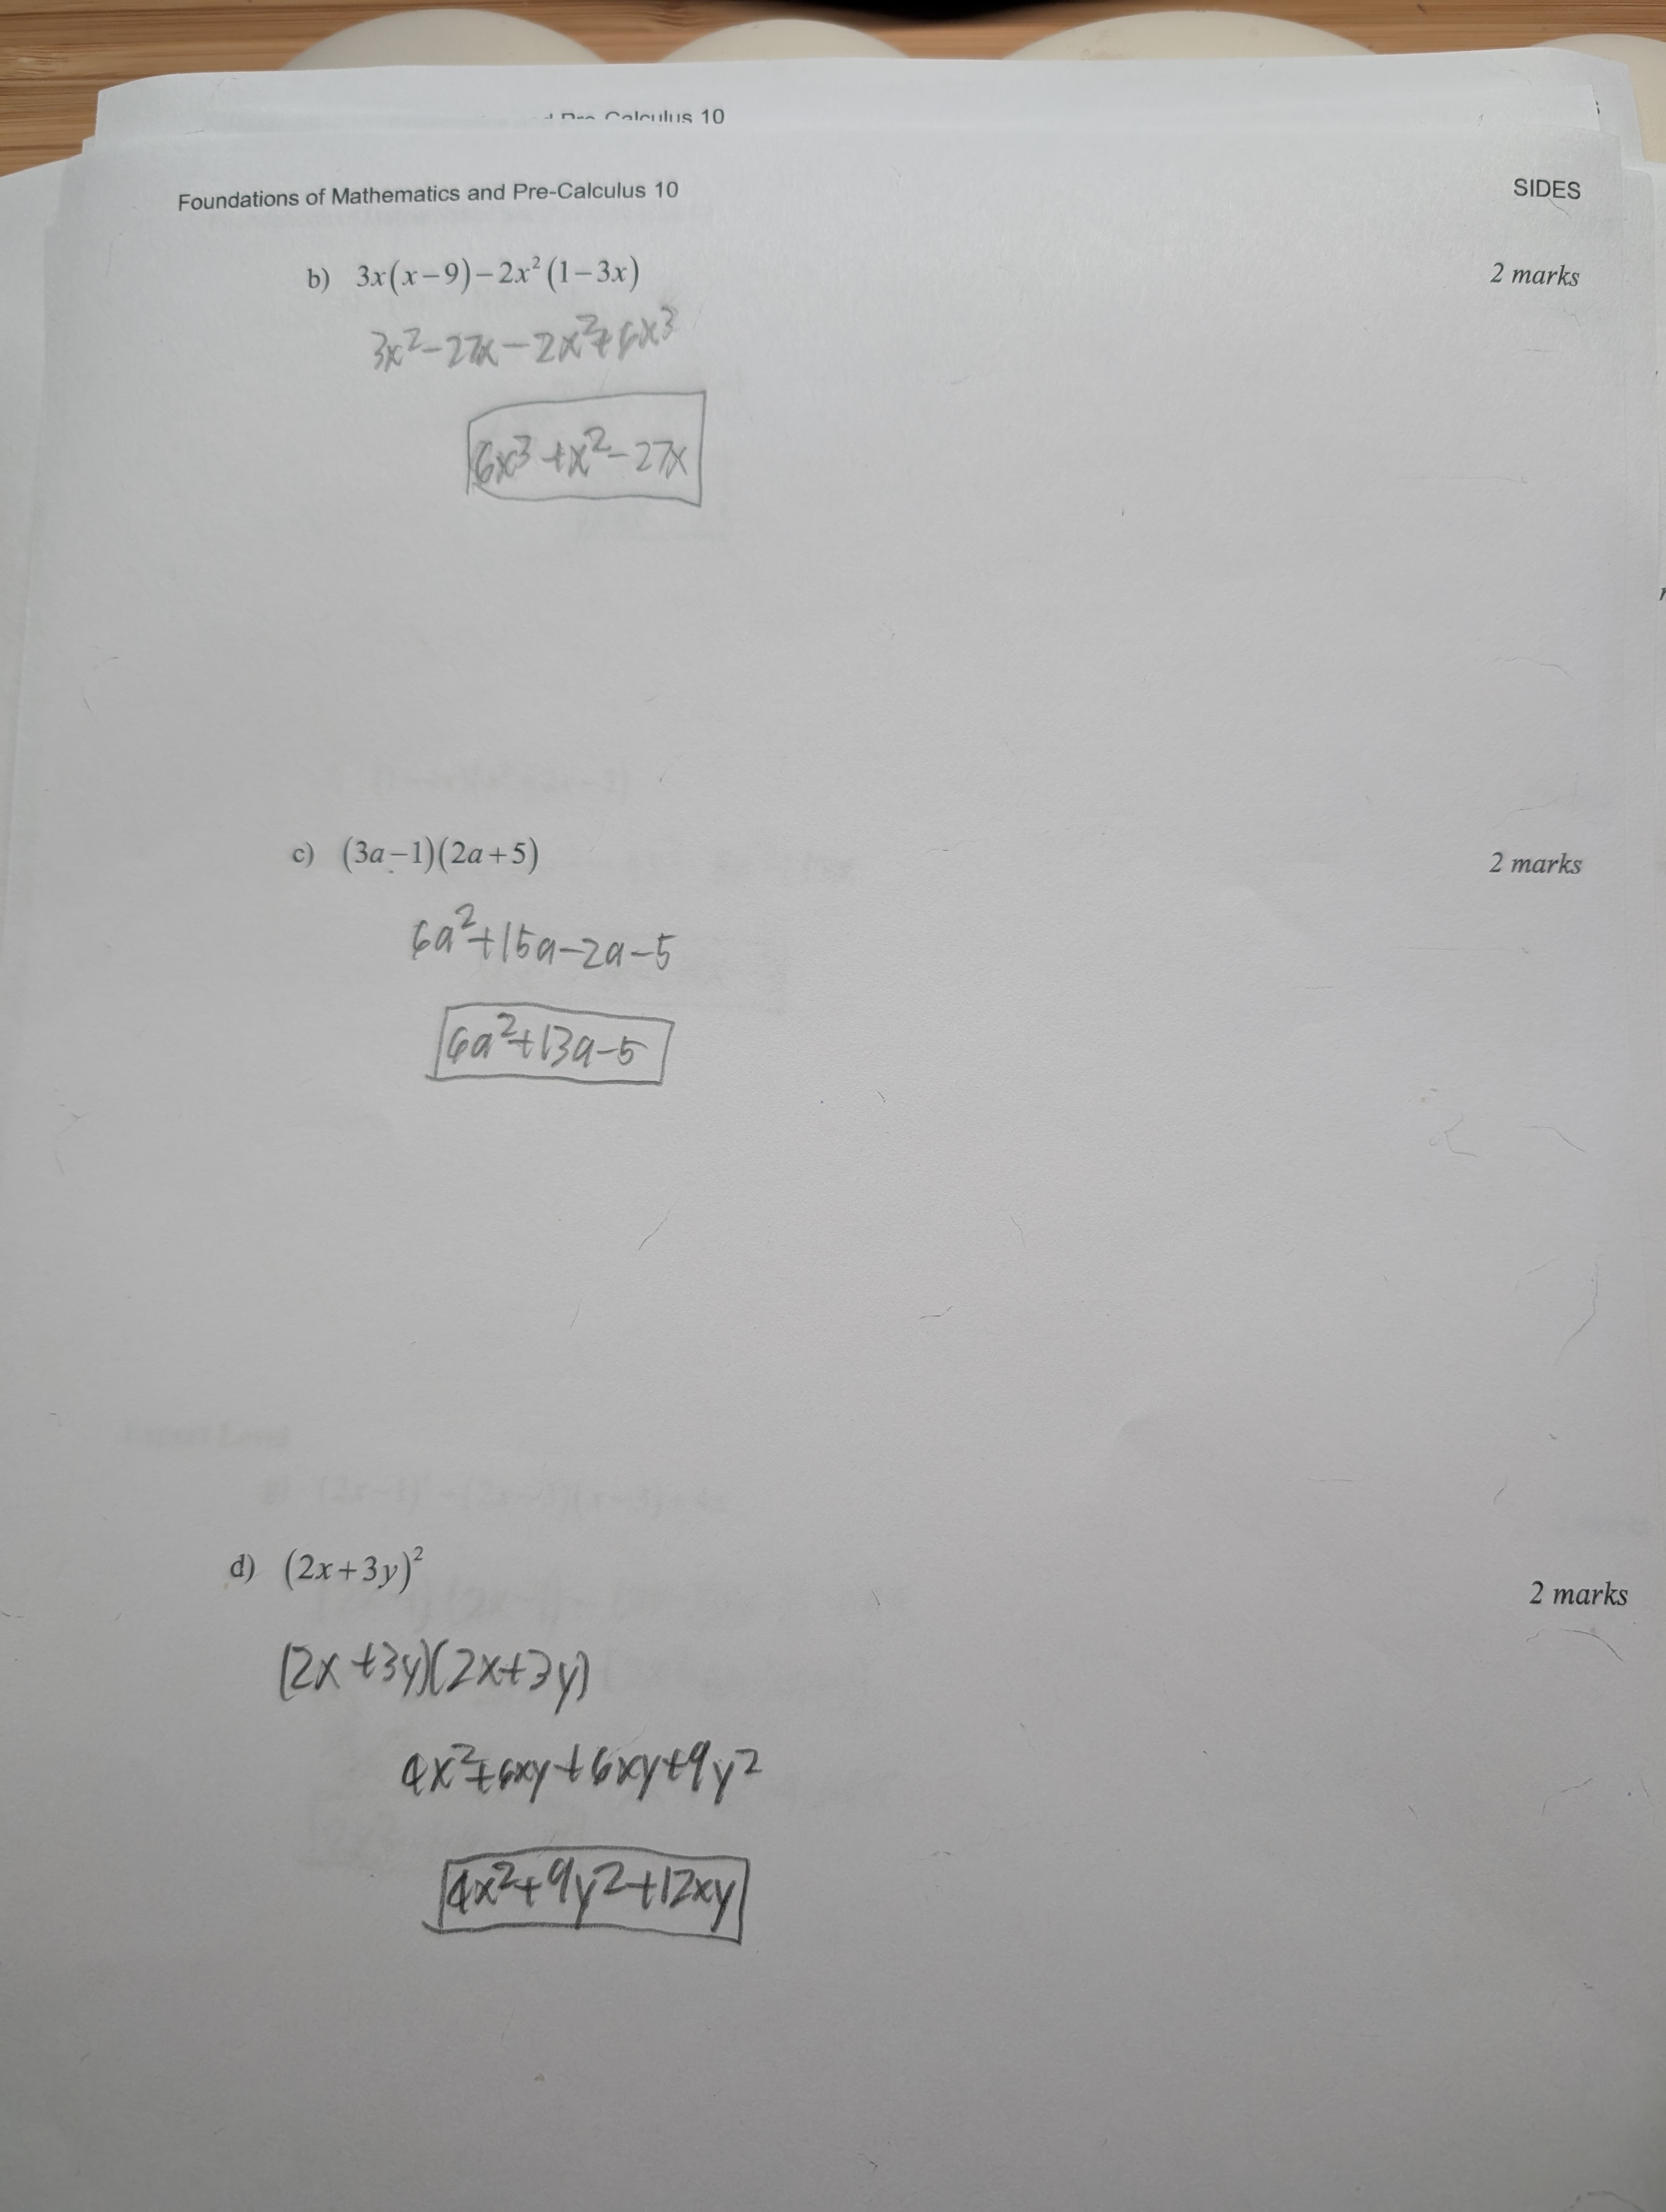 Calculus 10
Foundations of Mathematics and Pre-Calculus 10
SIDES
b) 3x(x−9)−2x²(1−3x)
2 marks
3x²−27x−2x²+6x³
6x³+x²−27x
c) (3a−1)(2a+5)
2 marks
6a²+15a−2a−5
6a²+13a−5
d) (2x+3y)²
2 marks
(2x+3y)(2x+3y)
4x²+6xy+6xy+9y²
4x²+9y²+12xy